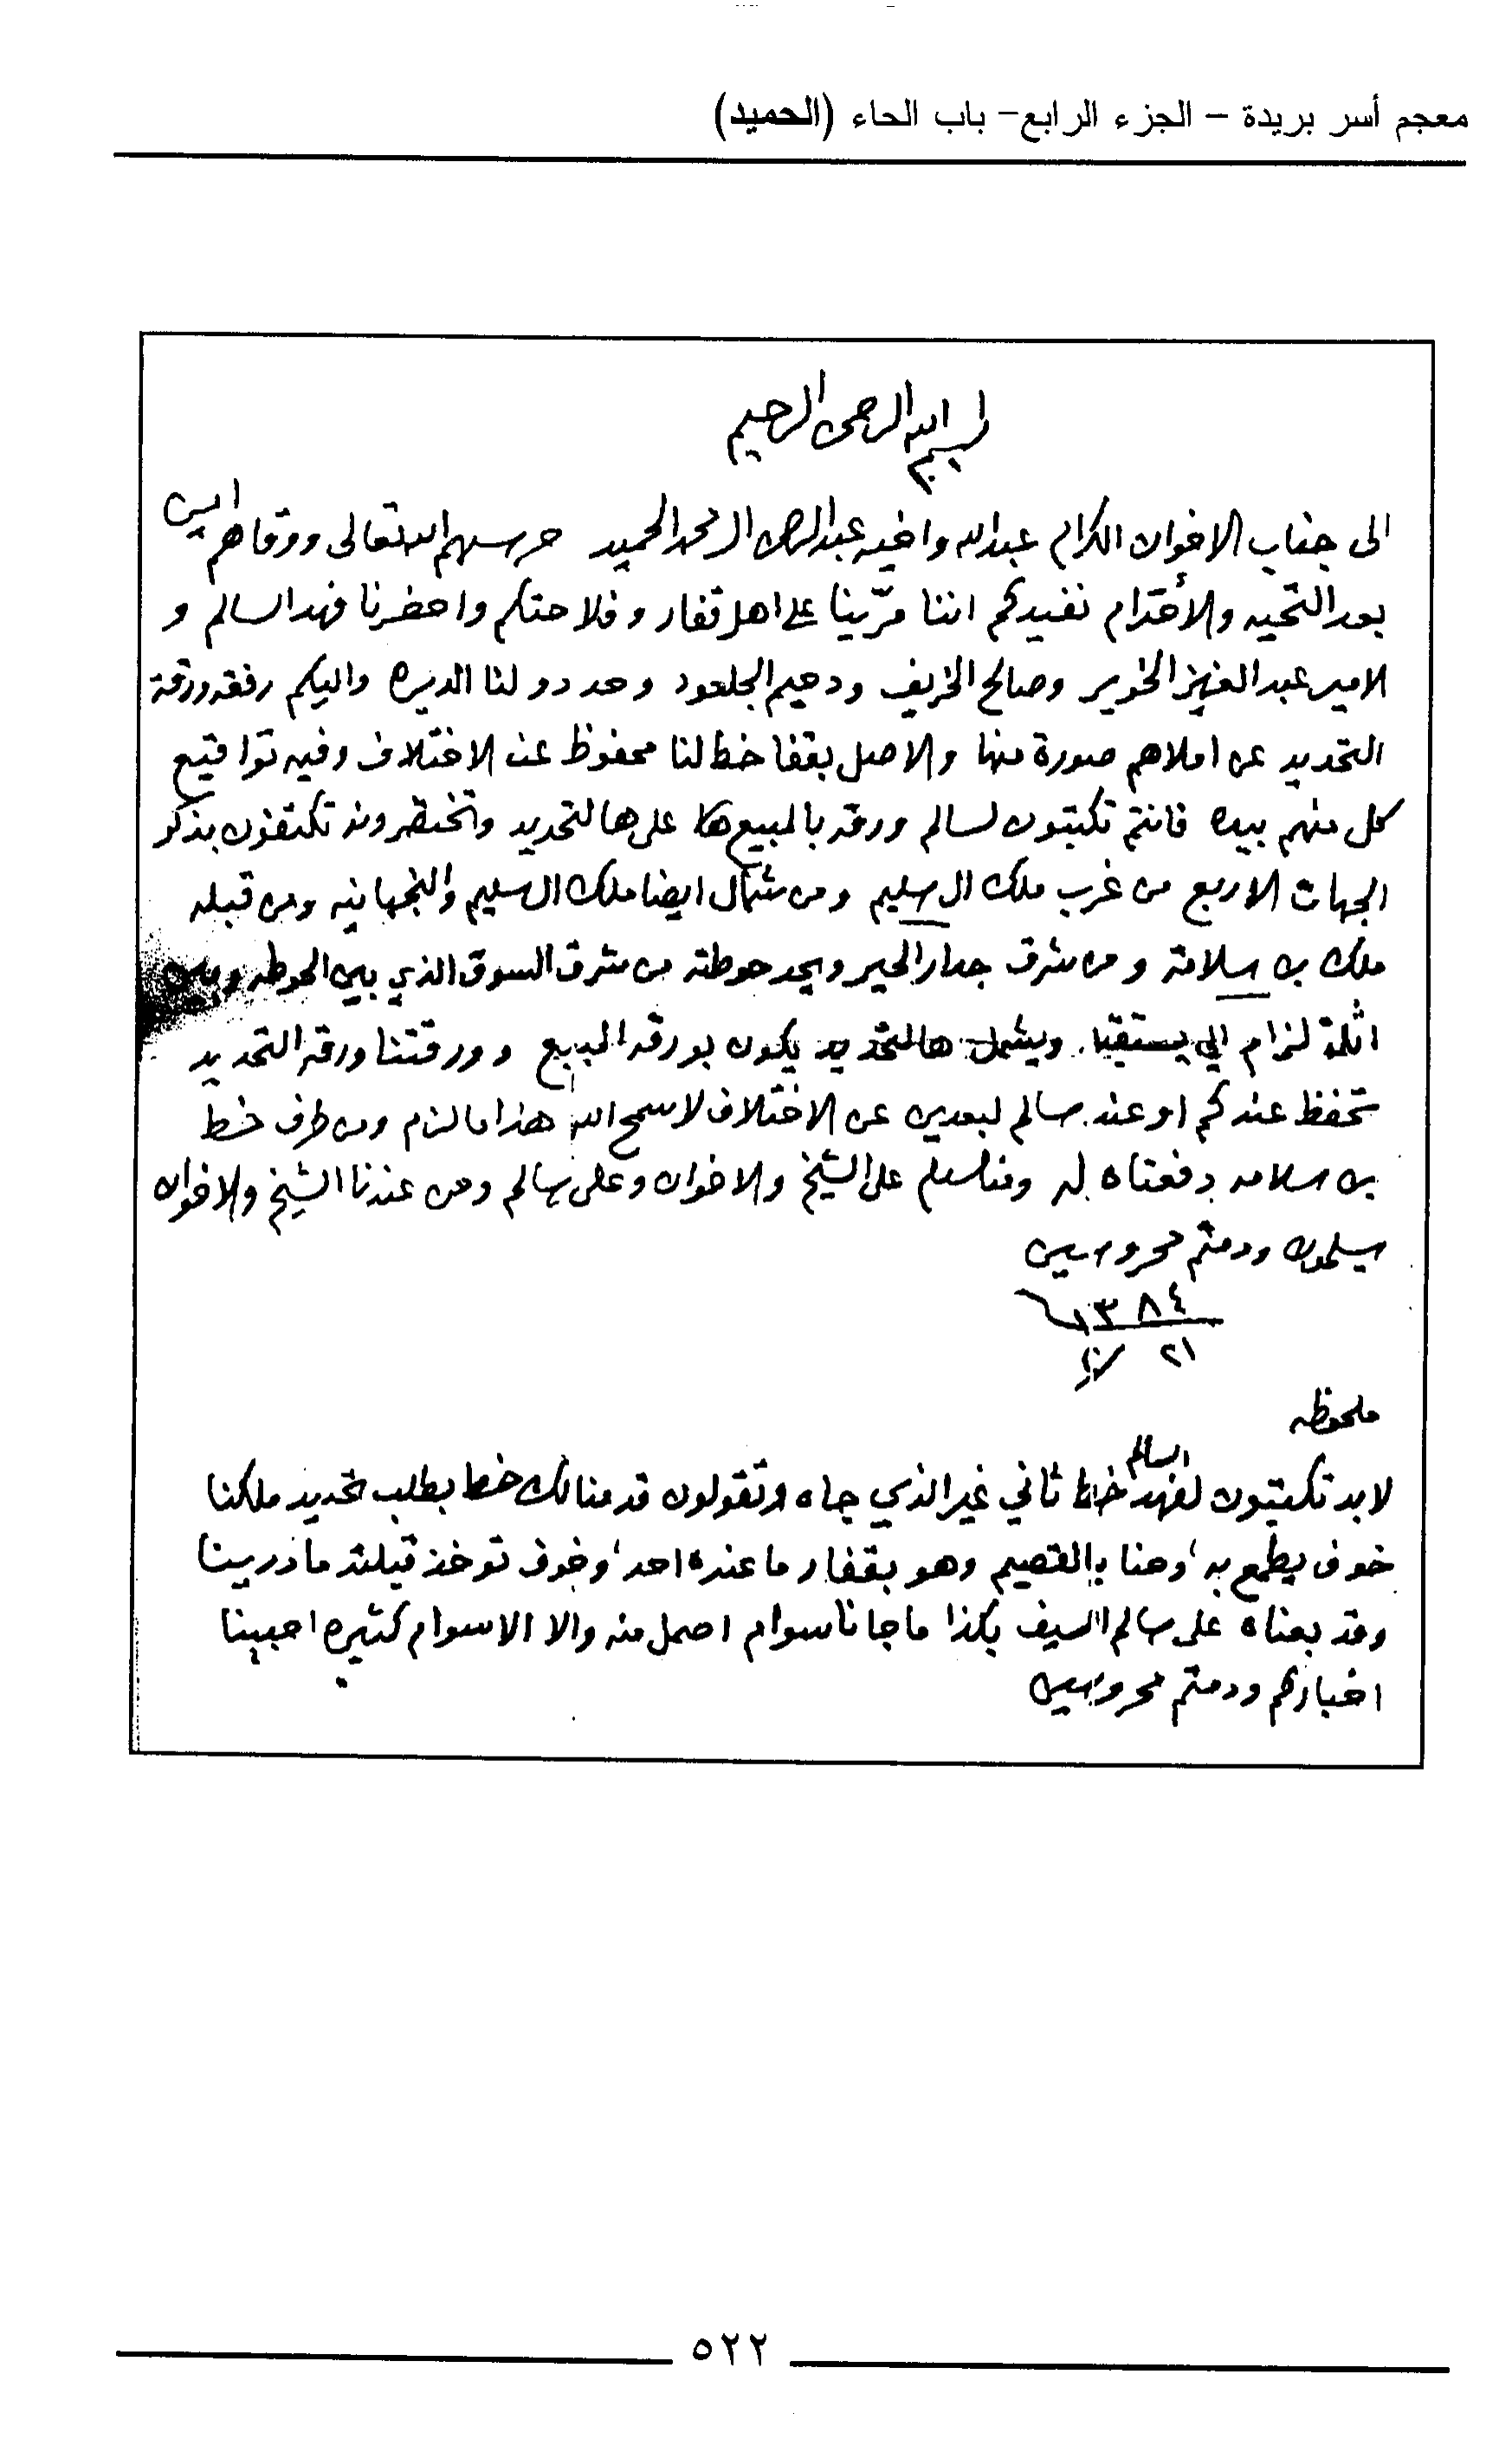 معجم أسر بريدة – الجزء الرابع– باب الحاء (الحميد)
بسم الله الرحمن الرحيم
الى جناب الاخوان الكرام عبدالله واخيه عبدالرحمن ال محمد الحميد حرسهم الله تعالى ووقاهم امين
بعد التحيه والأحترام نفيدكم اننا مرّينا على اهل قفار وفلاحتكم واحضرنا فهد السالم و
الامير عبد العزيز الخوير وصالح الخريف ودحيم الجلعود وحددو لنا الديره واليكم رفقه ورقة
التحديد عن املاهم صورة منها والاصل بقفا خط لنا محفوظ عن الاختلاف وفيه تواقيع
كل منهم بيده فانتم تكتبون لسالم ورقه بالمبيع على هالتحديد وتختصرونه تكتفون بذكر
الجهات الاربع من غرب ملك ال سليم ومن شمال ايضا ملك ال سليم والنجهانيه ومن قبله
ملك بن سلامة ومن شرق جدار الحير ويحد حوطته من شرق السوق الذي بين الحوطه وبين
اثلة لزام الي يستقيا. ويشمل هالتحديد يكون بورقه المبيع وورقتنا ورقه التحديد
تحفظ عندكم او عند سالم لبعدين عن الاختلاف لاسمح الله هذا مالزم ومن طرف خط
بن سلامه دفعناه له ومنا سلم على الشيخ والاخوان وعلى سالم ومن عندنا الشيخ والاخوان
يسلمون ودمتم محروسين
١٣٨٤
٢١
ملحوظه
لابد تكتبون لفهد السالم خط ثاني غير الذي جاه وتقولون قدمنا لك خط بطلب تحديد ملكنا
خوف يطمع به وحنا بالقصيم وهو بقفار ما عنده احد وخوف توخذ قبلته مادرينا
وقد بعناه على سالم السيف بكذا ما جانا سوام اصمل منه والا الاسوام كثيره احبينا
اخباركم ودمتم محروسين
٥٢٢